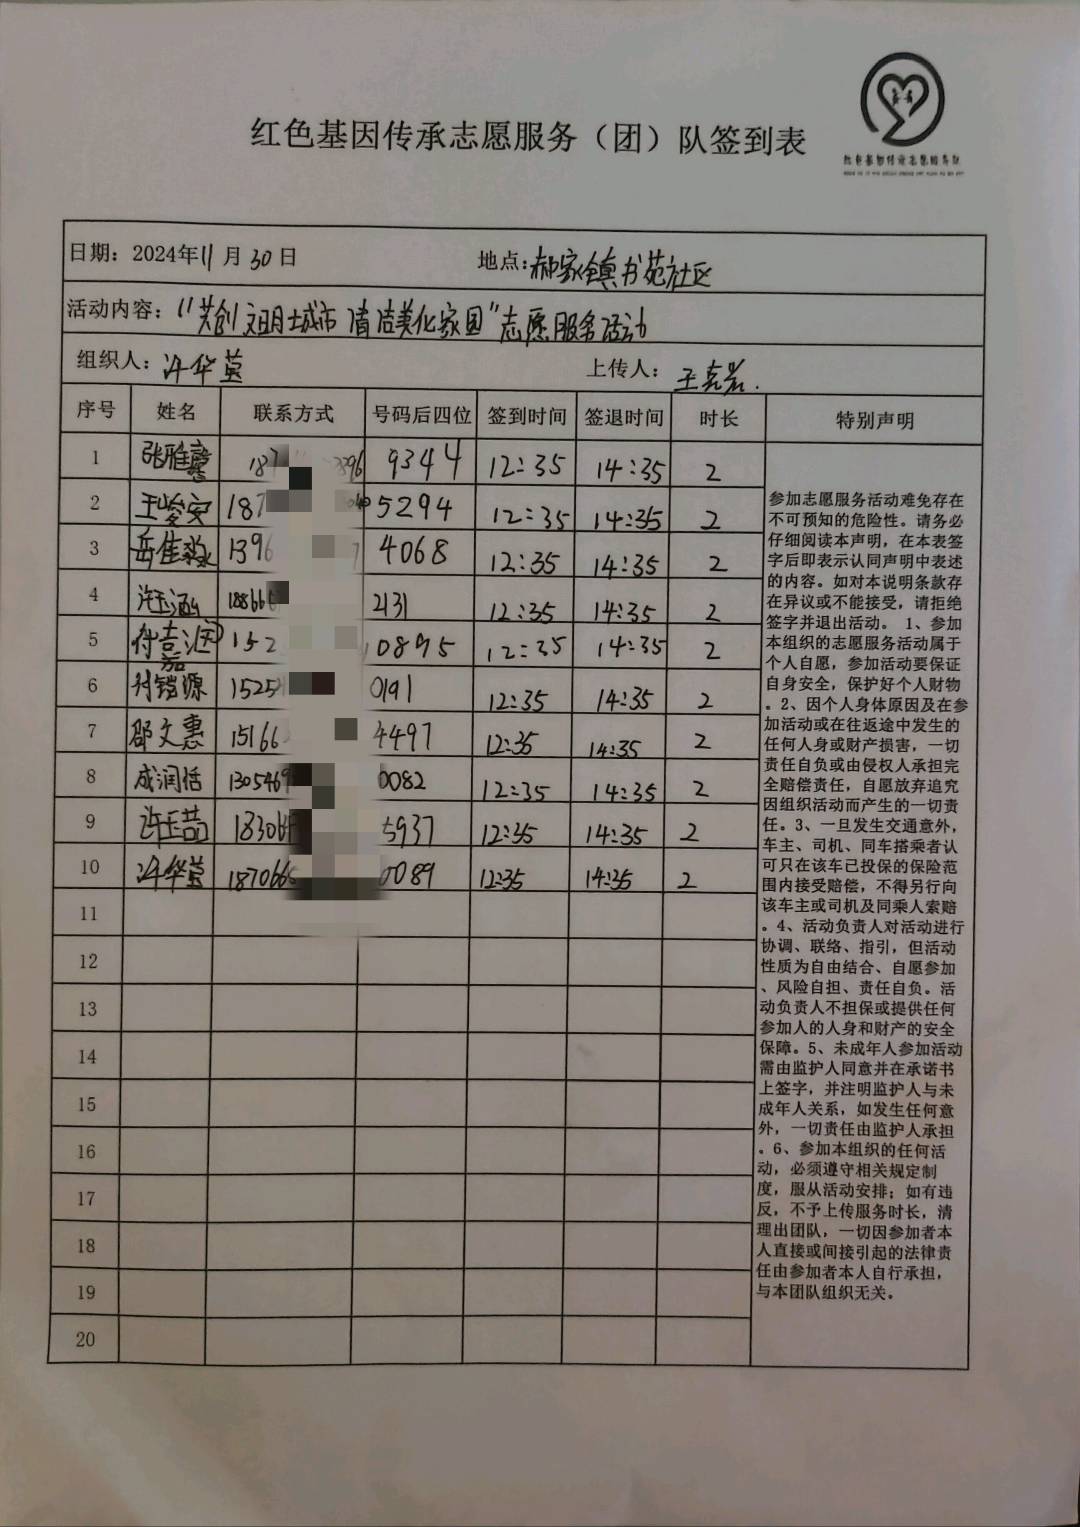 红色基因传承志愿服务（团）队签到表
红色基因传承志愿服务队
日期：2024年11月30日 地点：郝家镇书苑社区
活动内容：“共创文明城市 清洁美化家园”志愿服务活动
组织人：许华莹 上传人：王嘉岩.
序号 姓名 联系方式 号码后四位 签到时间 签退时间 时长 特别声明
1 张雅馨 187 396 9344 12:35 14:35 2
2 王峻安 187 5294 12:35 14:35 2
3 岳佳淼 1396 7 4068 12:35 14:35 2
4 许玉涵 188666 2131 12:35 14:35 2
5 152 0895 12:35 14:35 2
6 1525 0191 12:35 14:35 2
7 邵文惠 15166 4497 12:35 14:35 2
8 成润恬 1305469 0082 12:35 14:35 2
9 许玉喆 18306 5937 12:35 14:35 2
10 许华莹 1870665 0089 12:35 14:35 2
11
12
13
14
15
16
17
18
19
20
参加志愿服务活动难免存在
不可预知的危险性。请务必
仔细阅读本声明，在本表签
字后即表示认同声明中表述
的内容。如对本说明条款存
在异议或不能接受，请拒绝
签字并退出活动。 1、参加
本组织的志愿服务活动属于
个人自愿，参加活动要保证
自身安全，保护好个人财物
。2、因个人身体原因及在参
加活动或在往返途中发生的
任何人身或财产损害，一切
责任自负或由侵权人承担完
全赔偿责任，自愿放弃追究
因组织活动而产生的一切责
任。3、一旦发生交通意外，
车主、司机、同车搭乘者认
可只在该车已投保的保险范
围内接受赔偿，不得另行向
该车主或司机及同乘人索赔
。4、活动负责人对活动进行
协调、联络、指引，但活动
性质为自由结合、自愿参加
、风险自担、责任自负。活
动负责人不担保或提供任何
参加人的人身和财产的安全
保障。5、未成年人参加活动
需由监护人同意并在承诺书
上签字，并注明监护人与未
成年人关系，如发生任何意
外，一切责任由监护人承担
。6、参加本组织的任何活
动，必须遵守相关规定制
度，服从活动安排；如有违
反，不予上传服务时长，清
理出团队，一切因参加者本
人直接或间接引起的法律责
任由参加者本人自行承担，
与本团队组织无关。